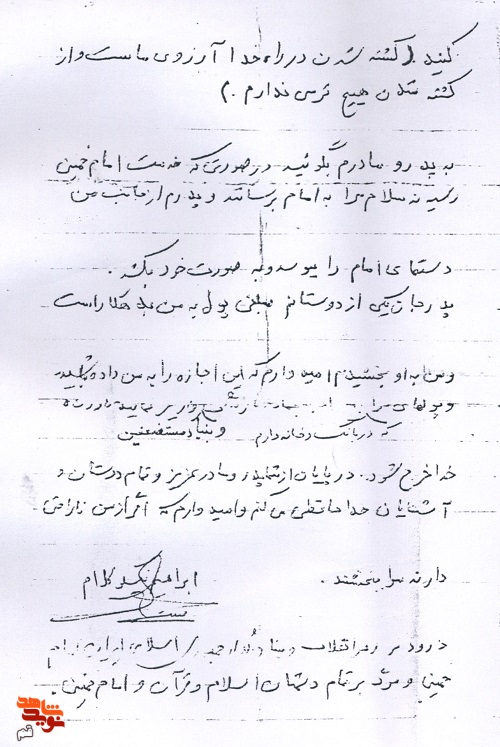 کنید. (کشته شدن در راه خدا آرزوی ماست و از
کشته شدن هیچ ترسی ندارم.)
به پدر و مادرم بگوئید در صورتی که خدمت امام خمینی
رسیدند سلام مرا به امام برسانند و پدرم از جانب من
دستهای امام را ببوسد و به صورت خود بکشد.
پدر جان یکی از دوستانم مبلغی پول به من بدهکار است
و من به او بخشیدم امیدوارم که این اجازه را به من داده باشید
و پولهای مرا به
که در بانک و خانه دارم و بنیاد مستضعفین
خدا خرج شود. در پایان از شما پدر و مادر عزیز و تمام دوستان و
آشنایان خداحافظی می کنم و امیدوارم که اگر از من ناراحتی
دارند مرا ببخشند.
ابراهیم نیکو کلام
درود بر رهبر انقلاب و بنیانگذار جمهوری اسلامی ایران امام
خمینی و مرگ بر تمام دشمنان اسلام و قرآن و امام خمینی.
شاهد
نوید
قم